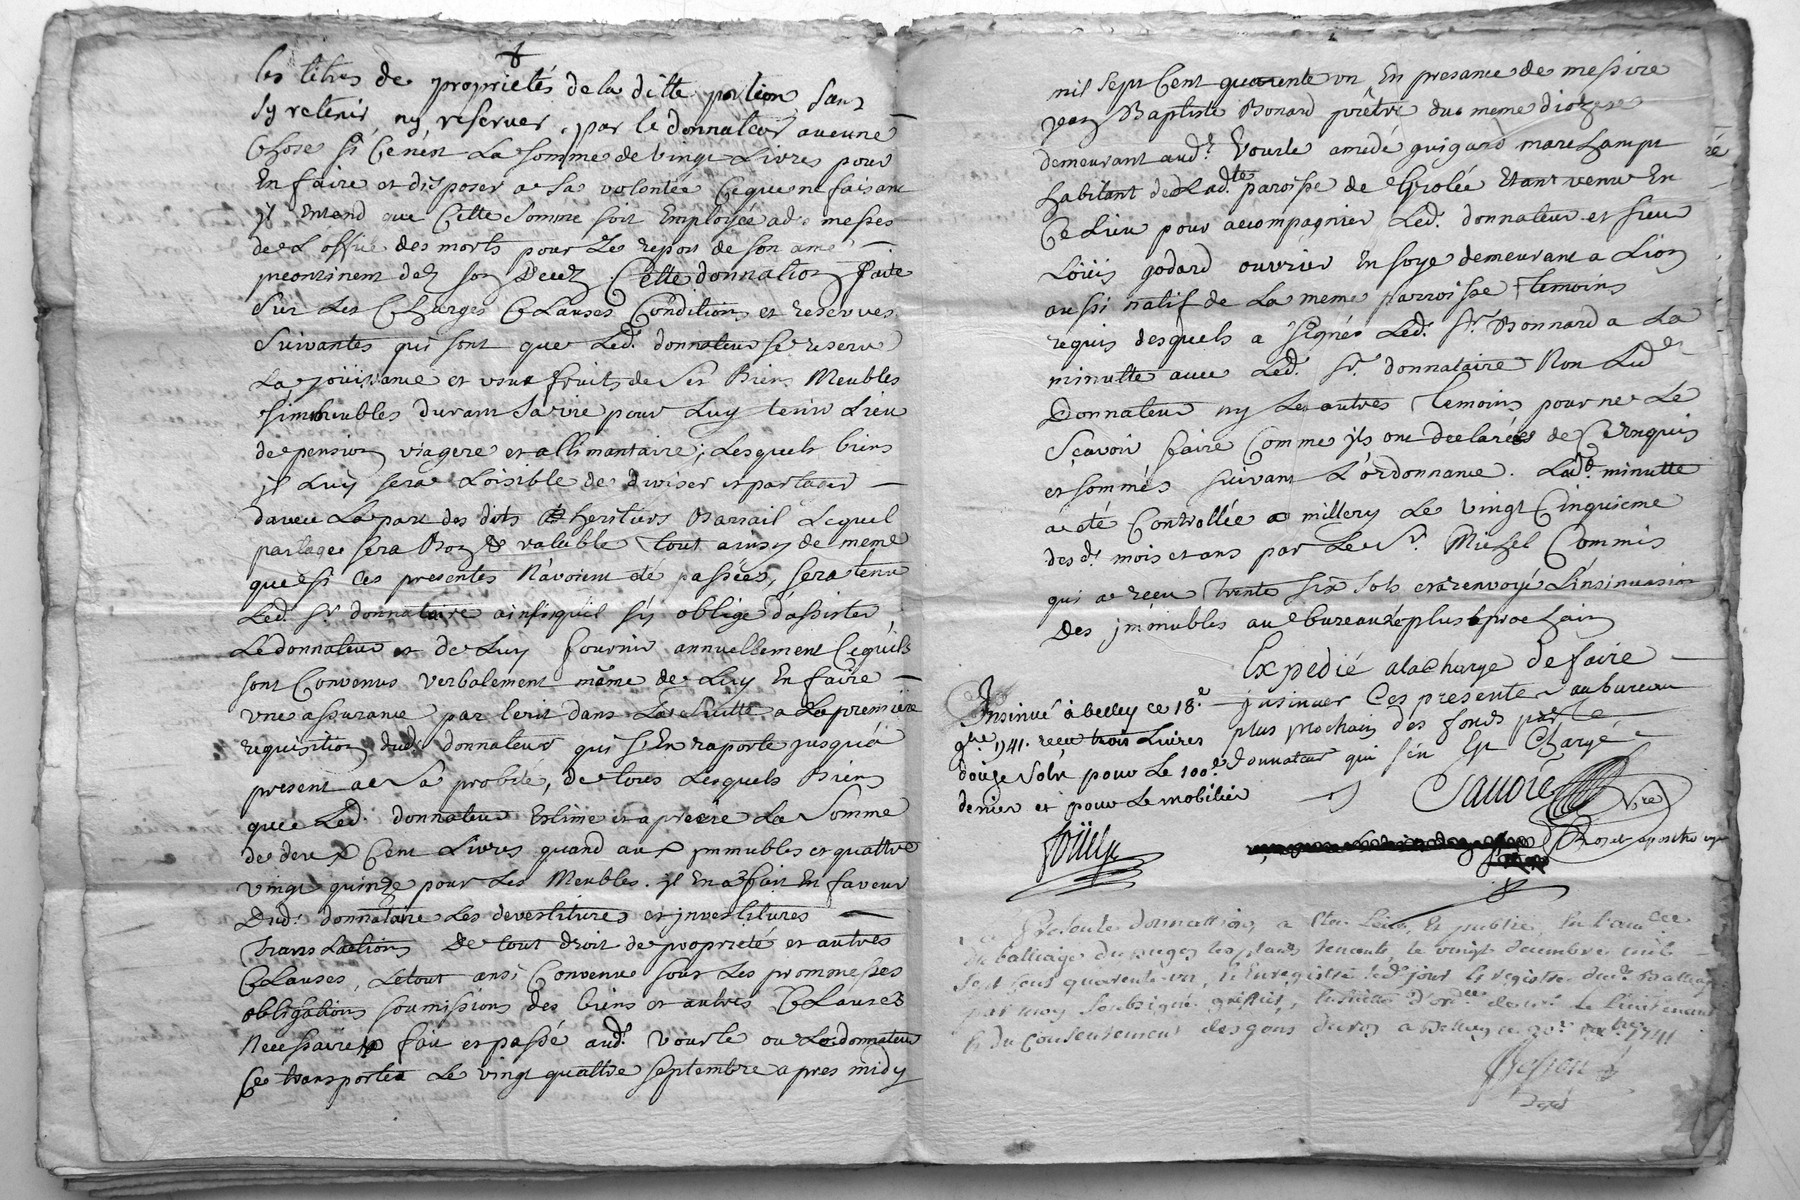 les titres de proprietés de la ditte portion sans
sy retenir ny reserver par le donnateur aucune
Chose si Ce nést La somme de vingt Livres pour
En faire et disposer a Sa volontée Ceque ne faisant
jl Entend que Cette Somme soit Employée a des messes
de L office des morts pour Le repos de son ame
jncontinent dez son Decez Cette donnation faite
Sur Les Charges Clauses Conditions et reserves
Suivantes qui sont que Led. donnateur se reserve
La joüissance et vsufruits de Ses Biens Meubles
jmmeubles durant Sa vie pour Luy tenir Lieu
de pension viagere et allimantaire, Lesquels biens
jl Luy sera Loisible de diviser et partager
davec La part des dits heritiers Barrail Lequel
partage sera Bon & valable tout ainsy de meme
que si Ces presentes N'avoient eté passées, sera tenu
Led. Sr. donnataire ainsi quil sy oblige d'assister
Le donnateur et de Luy fournir annuellement Cequils
sont Convenus verbalement même de Luy En faire
vne assurance par Ecrit dans La Suitte a La premiere
requisition dud. donnateur qui s'En raporte jusqu'á
present a Sa probité, de tous Lesquels Biens
que Led. donnateur Estime et aprecie La Somme
de deux Cent Livres quand aux jmmubles et quattre
vingt quinze pour Les Meubles. jl En a fait En faveur
Dud. donnataire Les devestitures et jnvestitures
Translations De tout droit de propriété et autres
Clauses, Letout ansi Convenu sous Les prommesses
obligations soumissions des biens et autres Clauses
Necessaires fait et passé aud. Vourle ou Le donnateur
Ce transporter Le vingt quattre septembre apres midy
mil sept Cent quarente vn En presance de messire
jean Baptiste Bonard prêtre du meme dioceze
demeurant aud. Vourle amedé guigard marchampt
habitant de Ladte. paroisse de Grolée Etant venu En
Ce Lieu pour acompagnier Led. donnateur et sieur
Loüis godard ouvrier En soye demeurant a Lion
aussi natif de La meme parroisse temoins
requis desquels a signés Led. Sr. Bonnard a La
minutte avec Led. Sr. donnataire Non Led.
Donnateur ny Les autres temoins pour ne Le
Sçavoir faire Comme jls ont declarés de Ce requis
et sommés suivant L'ordonnance. Lad. minutte
a eté Controllée a millery Le vingt Cinquieme
desd. mois et ans par Le Sr. Michel Commis
qui a reçu trente six sols et a renvoyé L'insinuasion
Des jmmubles au bureau le plus prochain
Expedié ala Charge de faire
jnsinuer Ces presentes au bureau
plus prochain des fonds par Le
donnateur qui s'en Est Chargé
Insinué à belley ce 18.e
9bre 1741. reçu trois Livres
douze Sols pour Le 100.e
denier et pour Le mobilier
presente donnation a Eté Leüe, et publiée, En l'audce
du balliage du bugey les plaids tenants, le vingt decembre mil
sept cens quarente un, & Enregistré led. jour Es registre dud. Balliage
par moy soubsigné greffier, Ensuitte d'ordce de Mr le lieutenant
& du Consentement des gens du roy a Belley ce 20.e decbre 1741